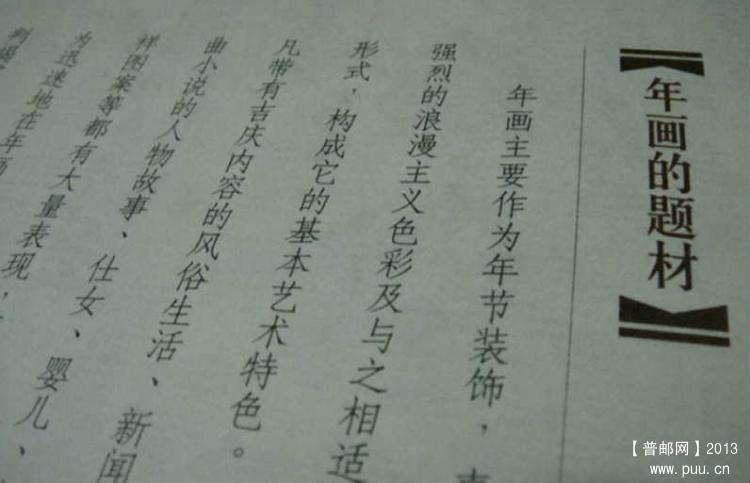 年画的题材
年画主要作为年节装饰，
强烈的浪漫主义色彩及与之相适
形式，构成它的基本艺术特色。
凡带有吉庆内容的风俗生活、新闻
曲小说的人物故事、仕女、婴儿、
祥图案等都有大量表现，
为迅速地在年画
【普邮网】2013
www.puu.cn